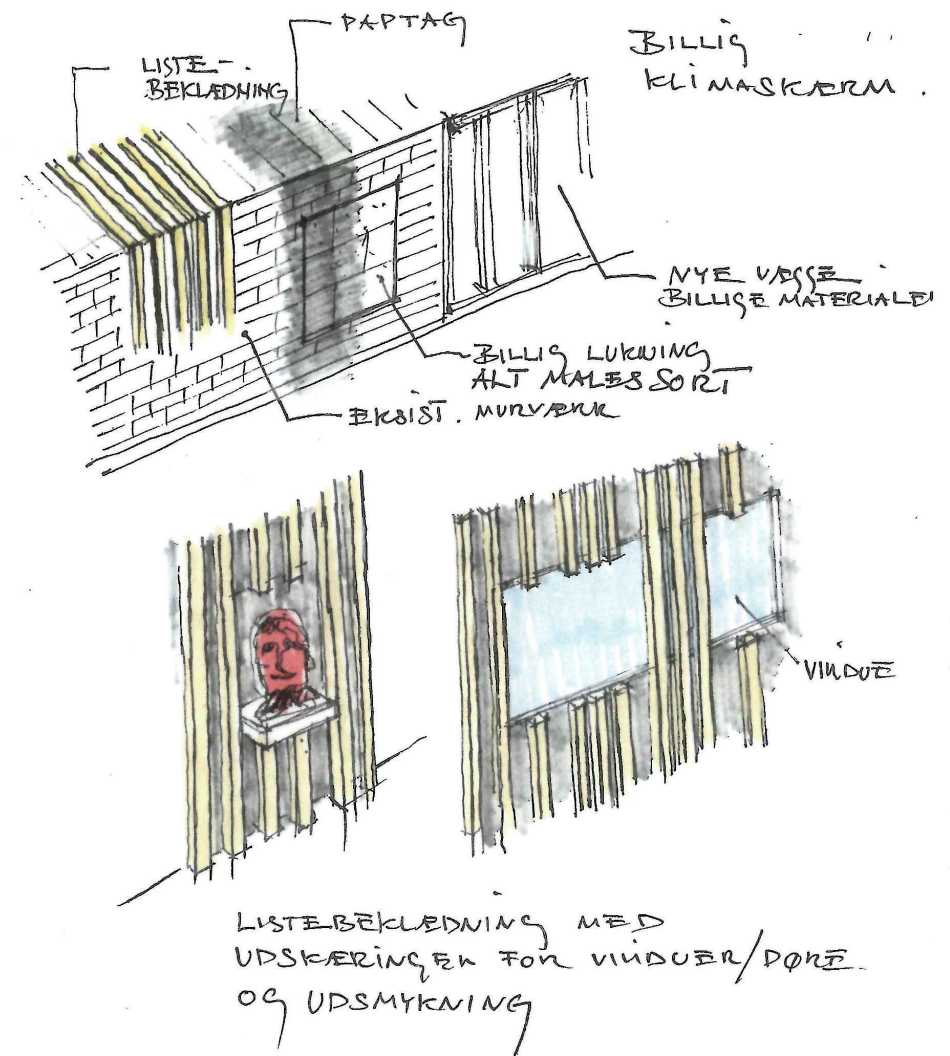 PAPTAG
BILLIG
KLIMASKÆRM.
LISTE-
BEKLÆDNING
NYE VÆGGE
BILLIGE MATERIALER
BILLIG LUKNING
ALT MALES SORT
EKSIST. MURVÆRK
VINDUE
LISTEBEKLÆDNING MED
UDSKÆRINGER FOR VINDUER/DØRE
OG UDSMYKNING